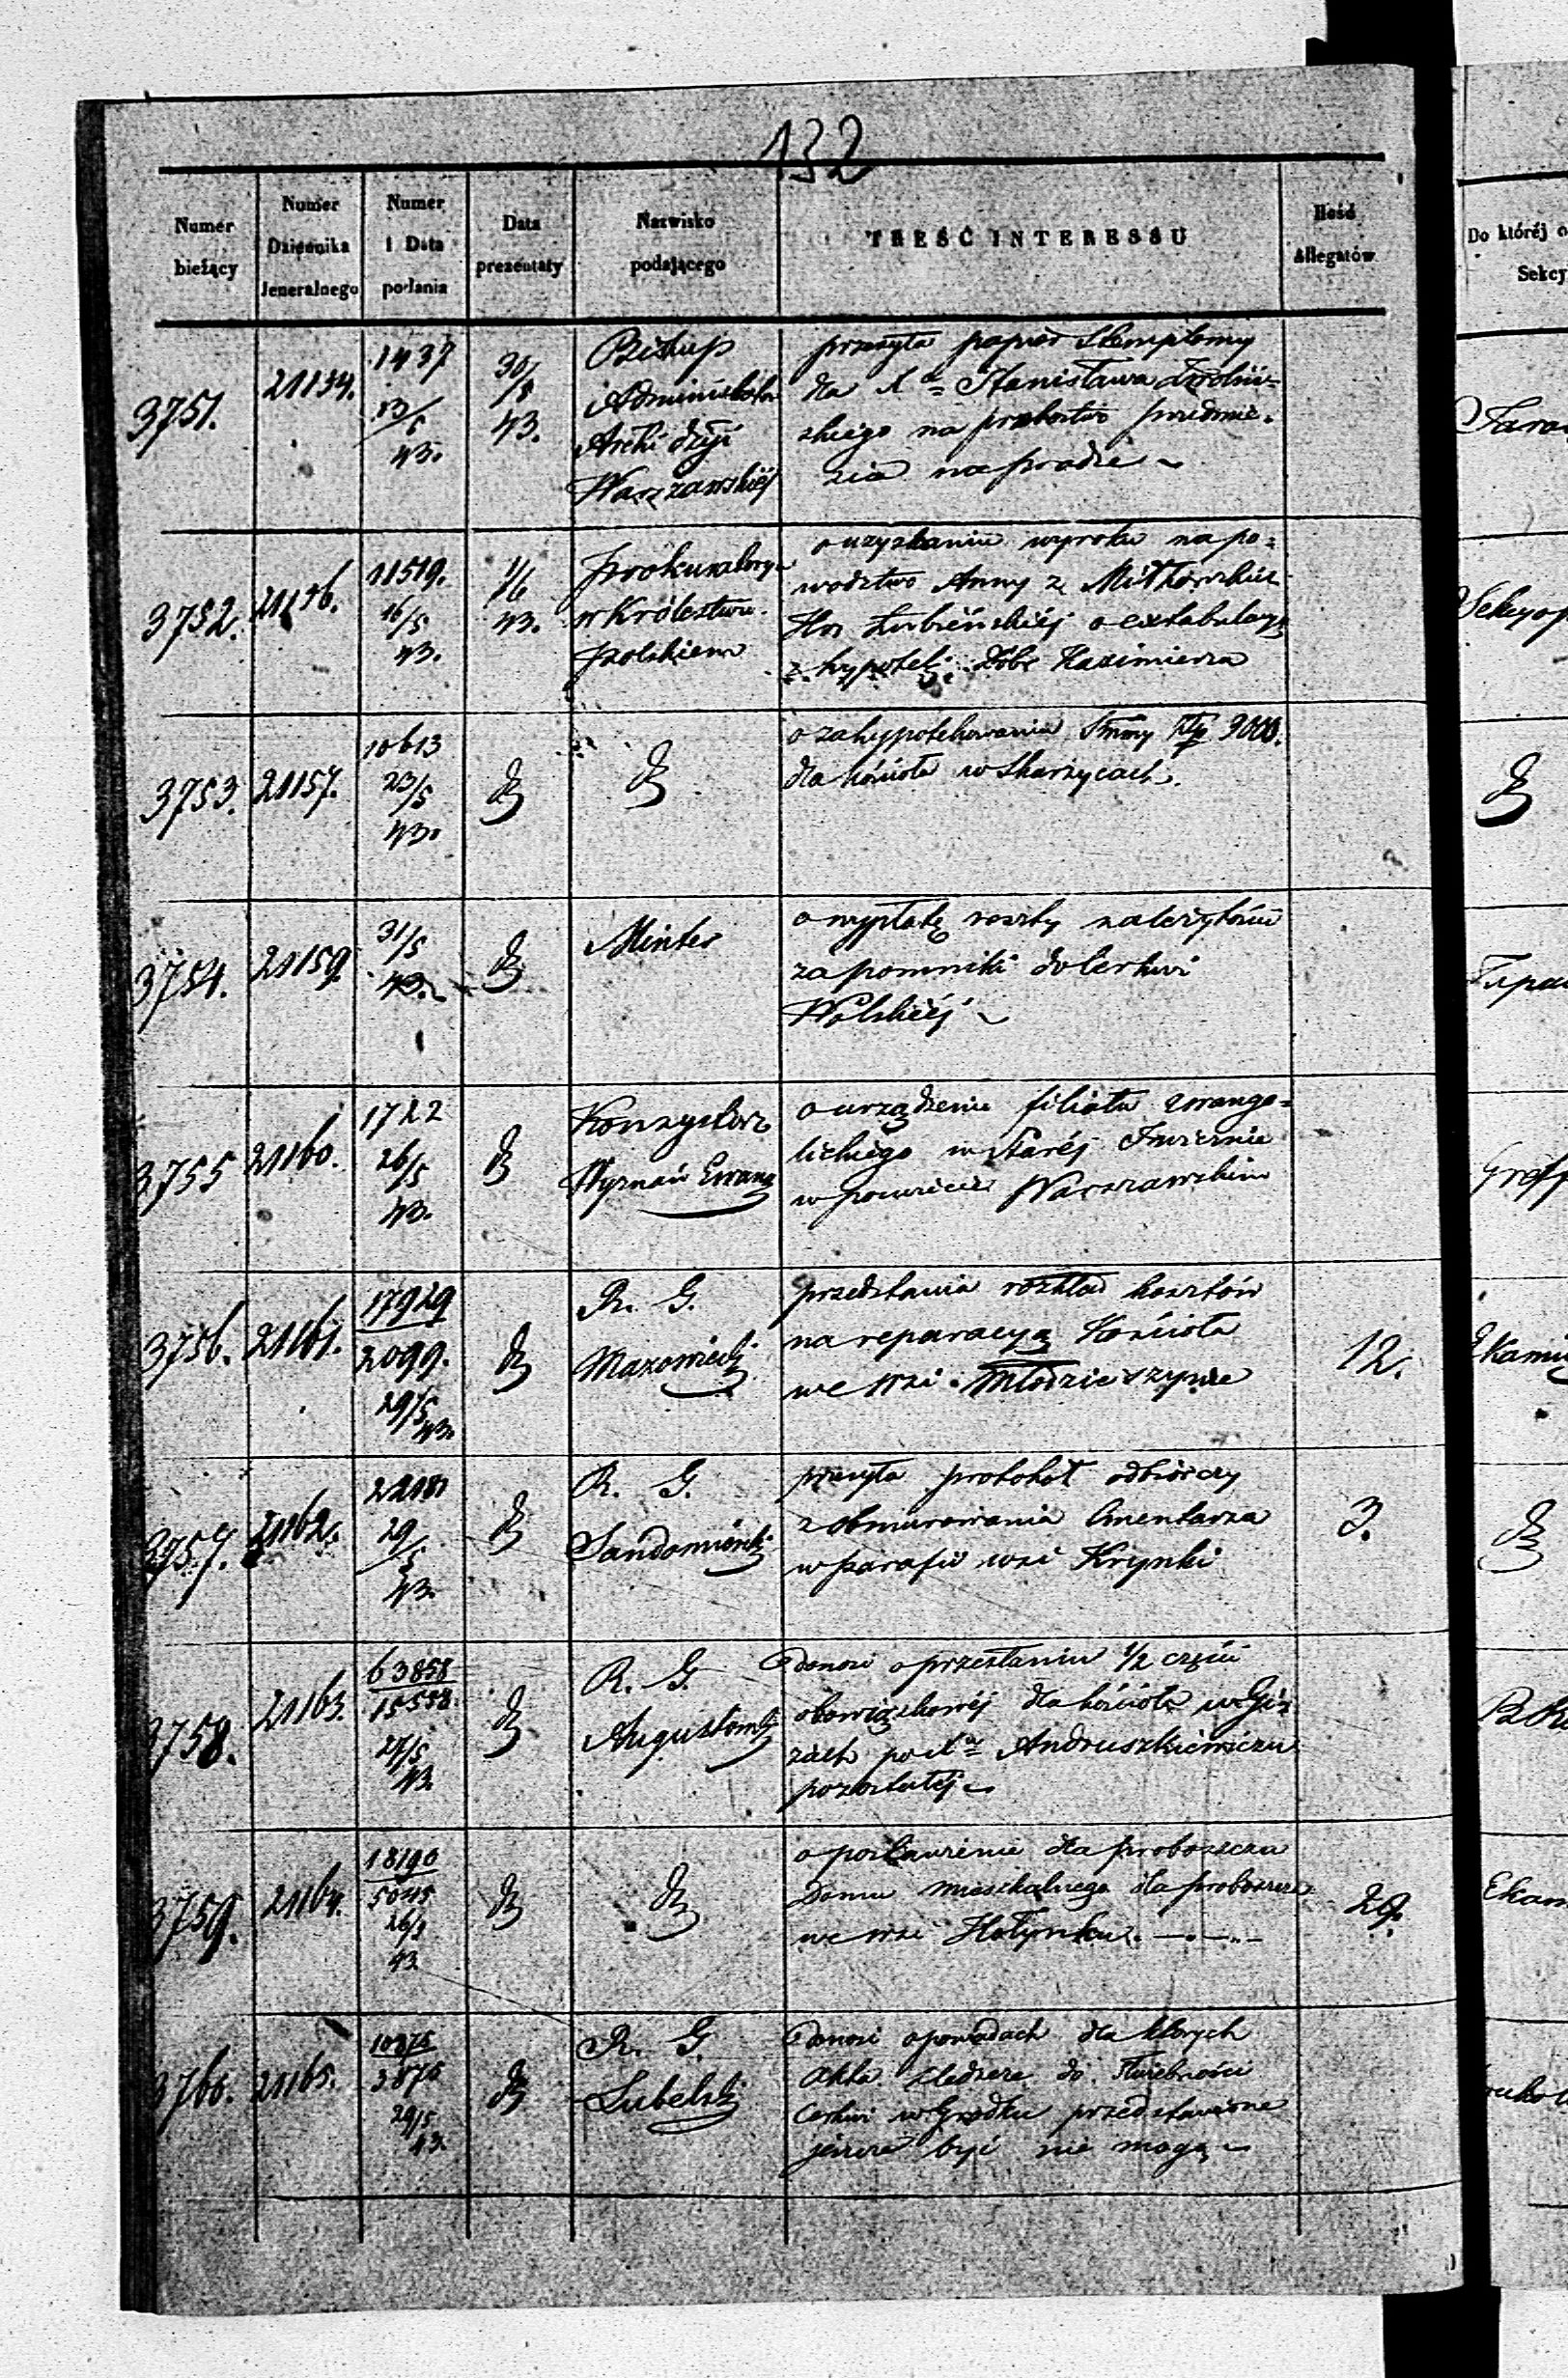 132
Numer bieżący
Numer Dziennika Jeneralnego
Numer i Data podania
Data prezentaty
Nazwisko podającego
TREŚĆ INTERESSU
Ilość Allegatów
Do któréj
Sekcy
3751.
21134.
1437
13/5
43.
30/5
43.
Biskup
Administrator
Archi dyji
Warszawskiéj
przesyła papier Stemplowy
dla Xa Stanisława
skiego na probostwo
3752.
21156.
11519.
16/5
43.
1/6
43.
Prokuratorya
w Królestwie
Polskiem
o uzyskaniu wyroku na po=
wodztwo Anny z
Hor Łubieńskiéj o extabulacyą
z hypoteki Dóbr Kazimierza
3753.
21157.
10613
23/5
43.
dto
dto
o zahypotekowanie Summy Złp 9000.
dla kościoła w Skarzycach.
dto
3754.
21159.
31/5
43.
dto
Minter
o wypłatę reszty należytości
za pomniki do Cerkwi
Wolskiéj
3755
21160.
1722
26/5
43.
dto
Konsystorz
Wyznań Ewang
o urządzeniu filiału ewange=
lickiego w Staréj Iwicznie
w powiecie Warszawskim
3756.
21161.
17929
2099.
29/5 43.
dto
R. G.
Mazowiecki
przedstawia rozkład kosztów
na reparacyą Kościoła
we wsi Młodzieszynie
12.
3757.
21162.
22181
29/5
43.
dto
R. G.
Sandomirski
przesyła protokół odbiorczy
z obmurowania Cmentarza
w parafii wsi Krynki
3.
dto
3758.
21163.
63858
15558
27/5
43.
dto
R. G.
Augustowski
donosi o przesłaniu 1/2 części
obowiązkowéj dla kościoła w
zach po Xu Andruszkiewiczu
pozostałéj
3759.
21164.
18190
5045
26/5
43.
dto
dto
o postawienie dla proboszcza
Domu mieszkalnego dla proboszcza
we wsi Hołynka.
29.
3760.
21165.
10875
3875
29/5
43.
dto
R. G.
Lubelski
donosi o powodach dla których
Akta śledcze do Służebności
Cerkwi w Gródku przedstawione
jeszcze być nie mogą